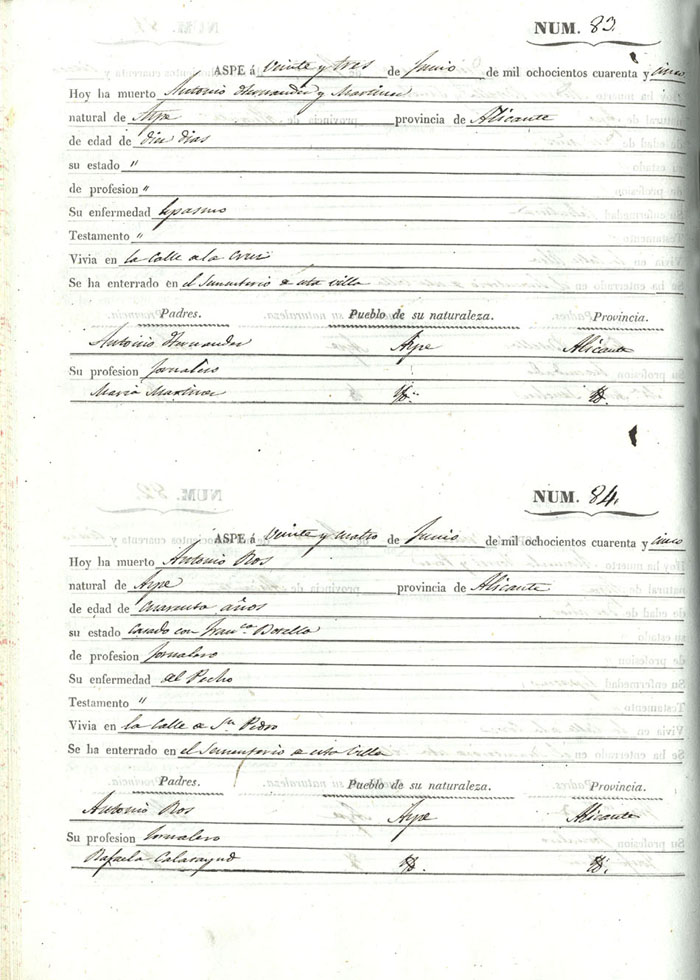 NUM. 83.
ASPE á Veinte y tres de Junio de mil ochocientos cuarenta y cinco
Hoy ha muerto Antonio Hernandez y Martinez
natural de Aspe provincia de Alicante
de edad de diez dias
su estado "
de profesion "
Su enfermedad Espasmo
Testamento "
Vivia en la Calle de la Cruz
Se ha enterrado en el Sementerio de esta villa
Padres. Pueblo de su naturaleza. Provincia.
Antonio Hernandez Aspe Alicante
Su profesion Jornalero
Maria Martinez Yd. Yd.
NUM. 84.
ASPE á Veinte y cuatro de Junio de mil ochocientos cuarenta y cinco
Hoy ha muerto Antonio Ros
natural de Aspe provincia de Alicante
de edad de cuarenta años
su estado Casado con Fran.ca Botella
de profesion Jornalero
Su enfermedad del Pecho
Testamento "
Vivia en la Calle de Sn. Pedro
Se ha enterrado en el Sementerio de esta Villa
Padres. Pueblo de su naturaleza. Provincia.
Antonio Ros Aspe Alicante
Su profesion Jornalero
Rafaela Calatayud Yd. Yd.